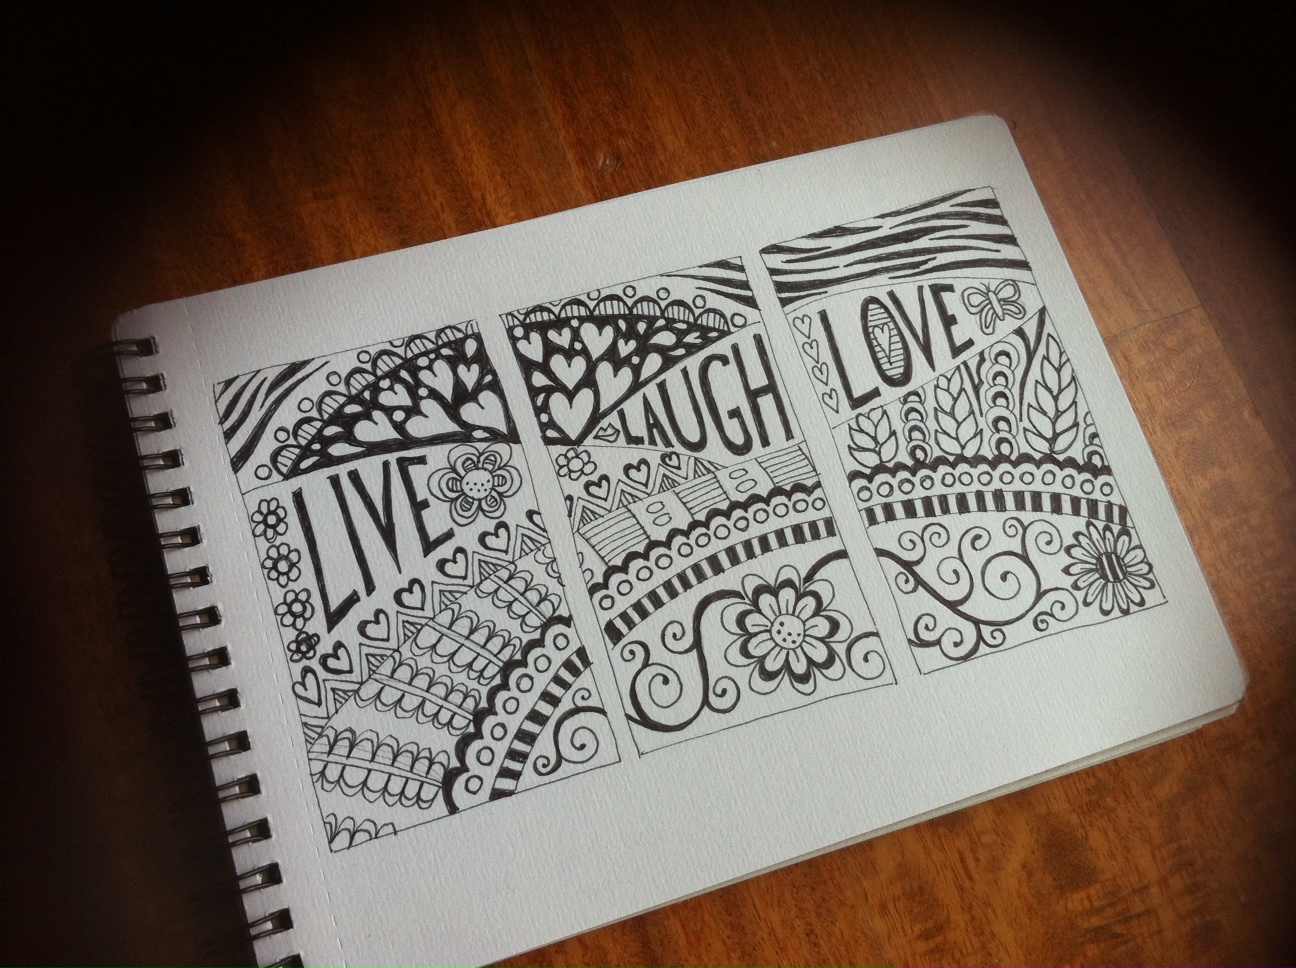 LIVE
LAUGH
LOVE